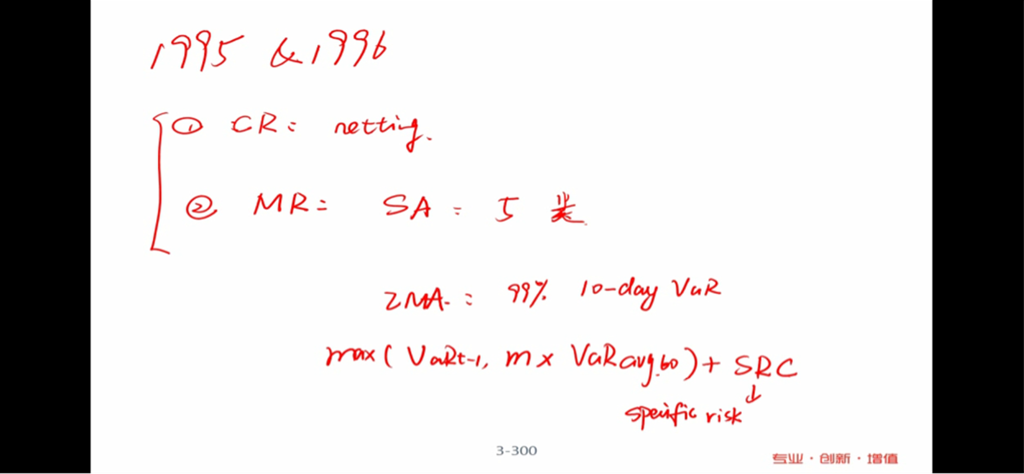 1995 & 1996
① CR: netting.
② MR: SA: 5 类
IMA.: 99% 10-day VaR
max( VaRt-1, m x VaRavg.60) + SRC
↓
specific risk
3-300
专业·创新·增值